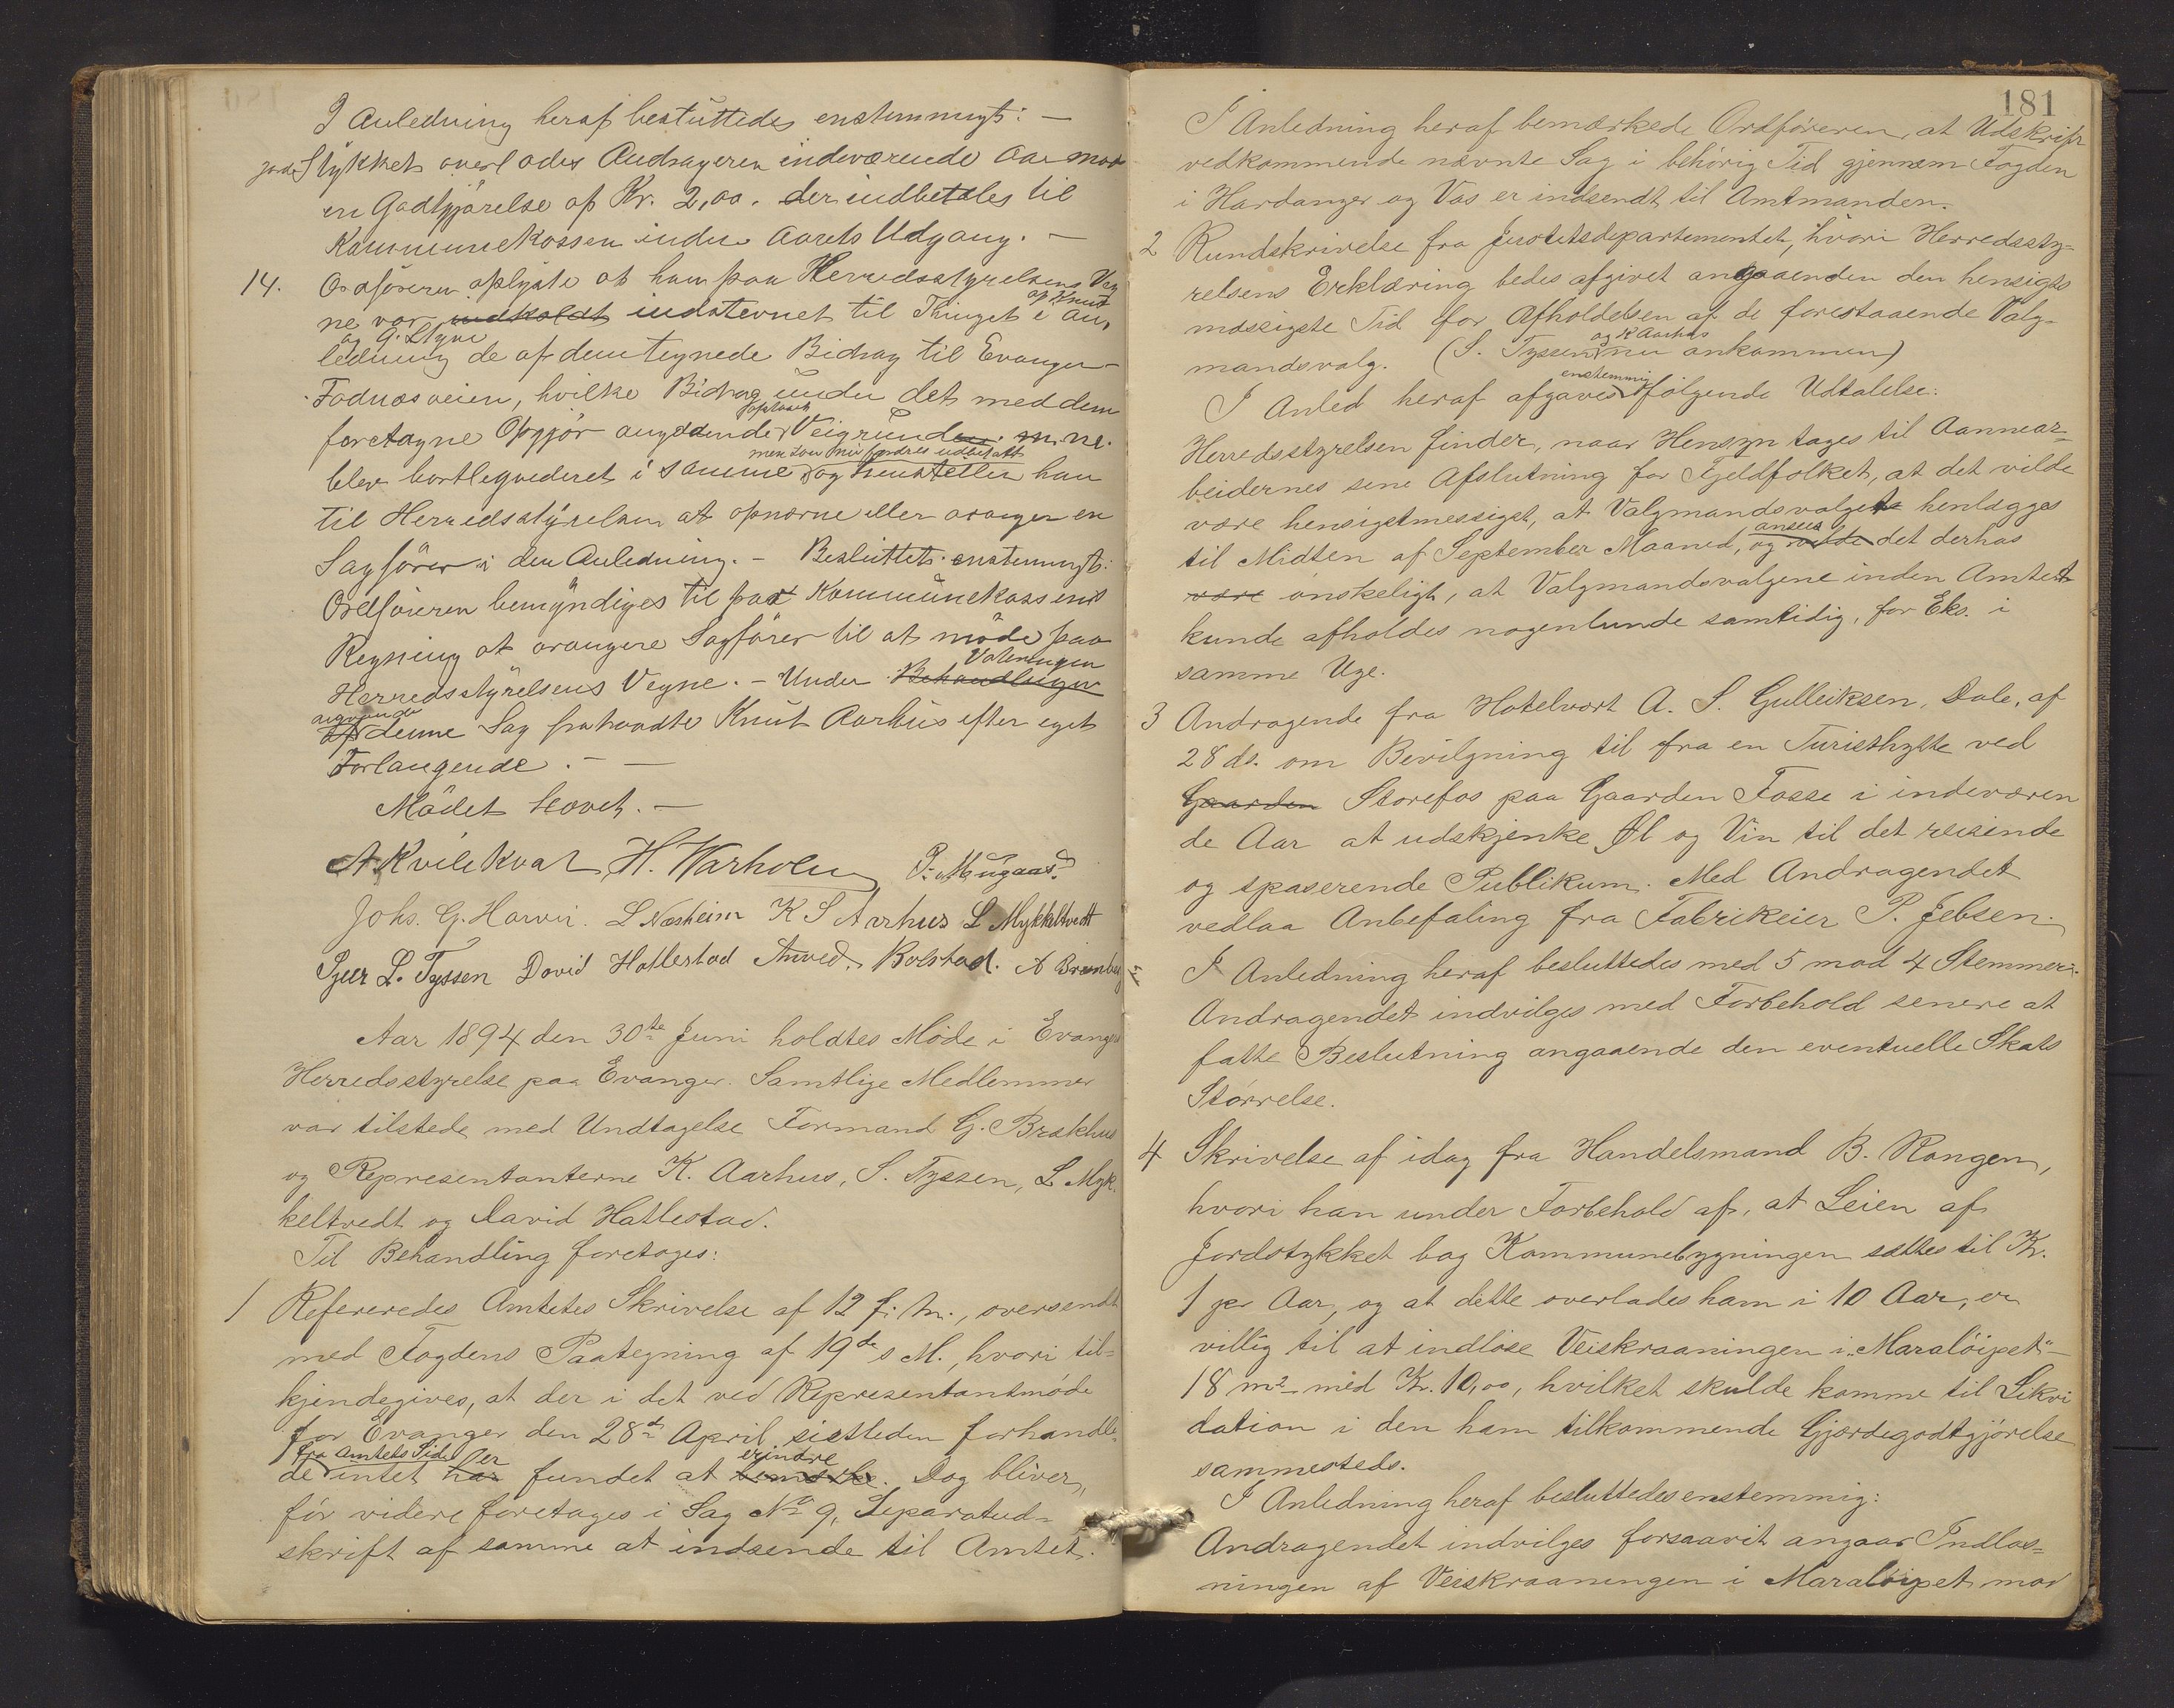 I Anledning heraf besluttedes enstemmigt: —
Jordstykket overlades Andrageren indeværende Aar mod
en Godtgjörelse af Kr. 2,00. der indbetales til
Kommunekassen inden Aarets Udgang. —
14. Ordföreren oplyste at han paa Herredsstyrelsens Veg
af Knut
ne var indkaldt indstevnet til Thinget i An,
og G. Styve
ledning de af dem tegnede Bidrag til Evanger-
Fadnæsveien, hvilke Bidrag under det med dem
foretagne Opgjör angaaende Veigrunden m.m.
men som nu fordres udbetalt
blev bortlegvederet i samme og henstiller han
til Herredsstyrelsen at opnævne eller arangere en
Sagförer i den Anledning. — Besluttet enstemmigt:
Ordföreren bemyndiges til paa Kommunekassens
Regning at arangere Sagförer til at möde paa
Voteringen
Herredsstyrelsens Vegne. — Under Behandlingen
angaaende
af denne Sag fratraadte Knut Aarhus efter eget
Forlangende. — —
Mödet hævet. —
A Kvilekval H. Warholm P. Mugaas
Johs. G. Horvei. L Næsheim K S Aarhus L Mykkeltvedt
Sjur L. Tyssen David Hallestad Amed. Bolstad. A Brænberg
Aar 1894 den 30te Juni holdtes Möde i Evanger
Herredsstyrelse paa Evanger. Samtlige Medlemmer
var tilstede med Undtagelse Formand G. Brækhus
og Representanterne K. Aarhus, S. Tyssen, L Myk
keltvedt og David Hallestad.
Til Behandling foretages:
1 Refereredes Amtets Skrivelse af 12 f. M., oversendt
med Fogdens Paategning af 19de s M., hvori til-
kjendegives, at der i det ved Representantmöde
for Evanger den 28de April sistleden forhandle-
fra Amtets Side er erindre
de intet har fundet at bemærke. Dog bliver,
för videre foretages i Sag No 9, Separatud-
skrift af samme at indsende til Amtet.
181
I Anledning heraf bemærkede Ordföreren, at Udskrift
vedkommende nævnte Sag i behörig Tid gjennem Fogden
i Hardanger og Vos er indsendt til Amtmanden.
2 Rundskrivelse fra Justitsdepartementet, hvori Herredssty-
relsens Erklæring bedes afgivet angaaenden den hensigts
mæssigste Tid for Afholdelsen af de forestaaende Valg-
og K Aarhus
mandsvalg. (S. Tyssen nu ankommen)
enstemmig
I Anled heraf afgaves fölgende Udtalelse:
Herredsstyrelsen finder, naar Hensyn tages til Aannear-
beidernes sene Afslutning for Fjeldfolket, at det vilde
være hensigtmessigst, at Valgmandsvalget henlægges
ansees
til Midten af September Maaned, og vilde det derhos
være önskeligt, at Valgmandsvalgene inden Amtet
kunde afholdes nogenlunde samtidig, for Eks. i
samme Uge.
3 Andragende fra Hotelvært A. S. Gulleiksen, Dale, af
28 ds. om Bevilgning til fra en Turisthytte ved
Gaarden Storefos paa Gaarden Fosse i indeværen
de Aar at udskjenke Øl og Vin til det reisende
og spaserende Publikum. Med Andragendet
vedlaa Anbefaling fra Fabrikeier P. Jebsen.
I Anledning heraf besluttedes med 5 mod 4 Stemmer:
Andragendet indvilges med Forbehold senere at
fatte Beslutning angaaende den eventuelle Skats
Störrelse.
4 Skrivelse af idag fra Handelsmand B. Rongen,
hvori han under Forbehold af, at Leien af
Jordstykket bag Kommunebygningen sættes til Kr.
1 pr Aar, og at dette overlades ham i 10 Aar, er
villig til at indlöse Veiskraaningen i „Maralöipet" —
18 m2 med Kr. 10,00, hvilket skulde komme til Likvi
dation i den ham tilkommende Gjærdegodtgjörelse
sammesteds.
I Anledning heraf besluttedes enstemmig:
Andragendet indvilges forsaavit angaar Indlös-
ningen af Veiskraaningen i Maralöipet mod